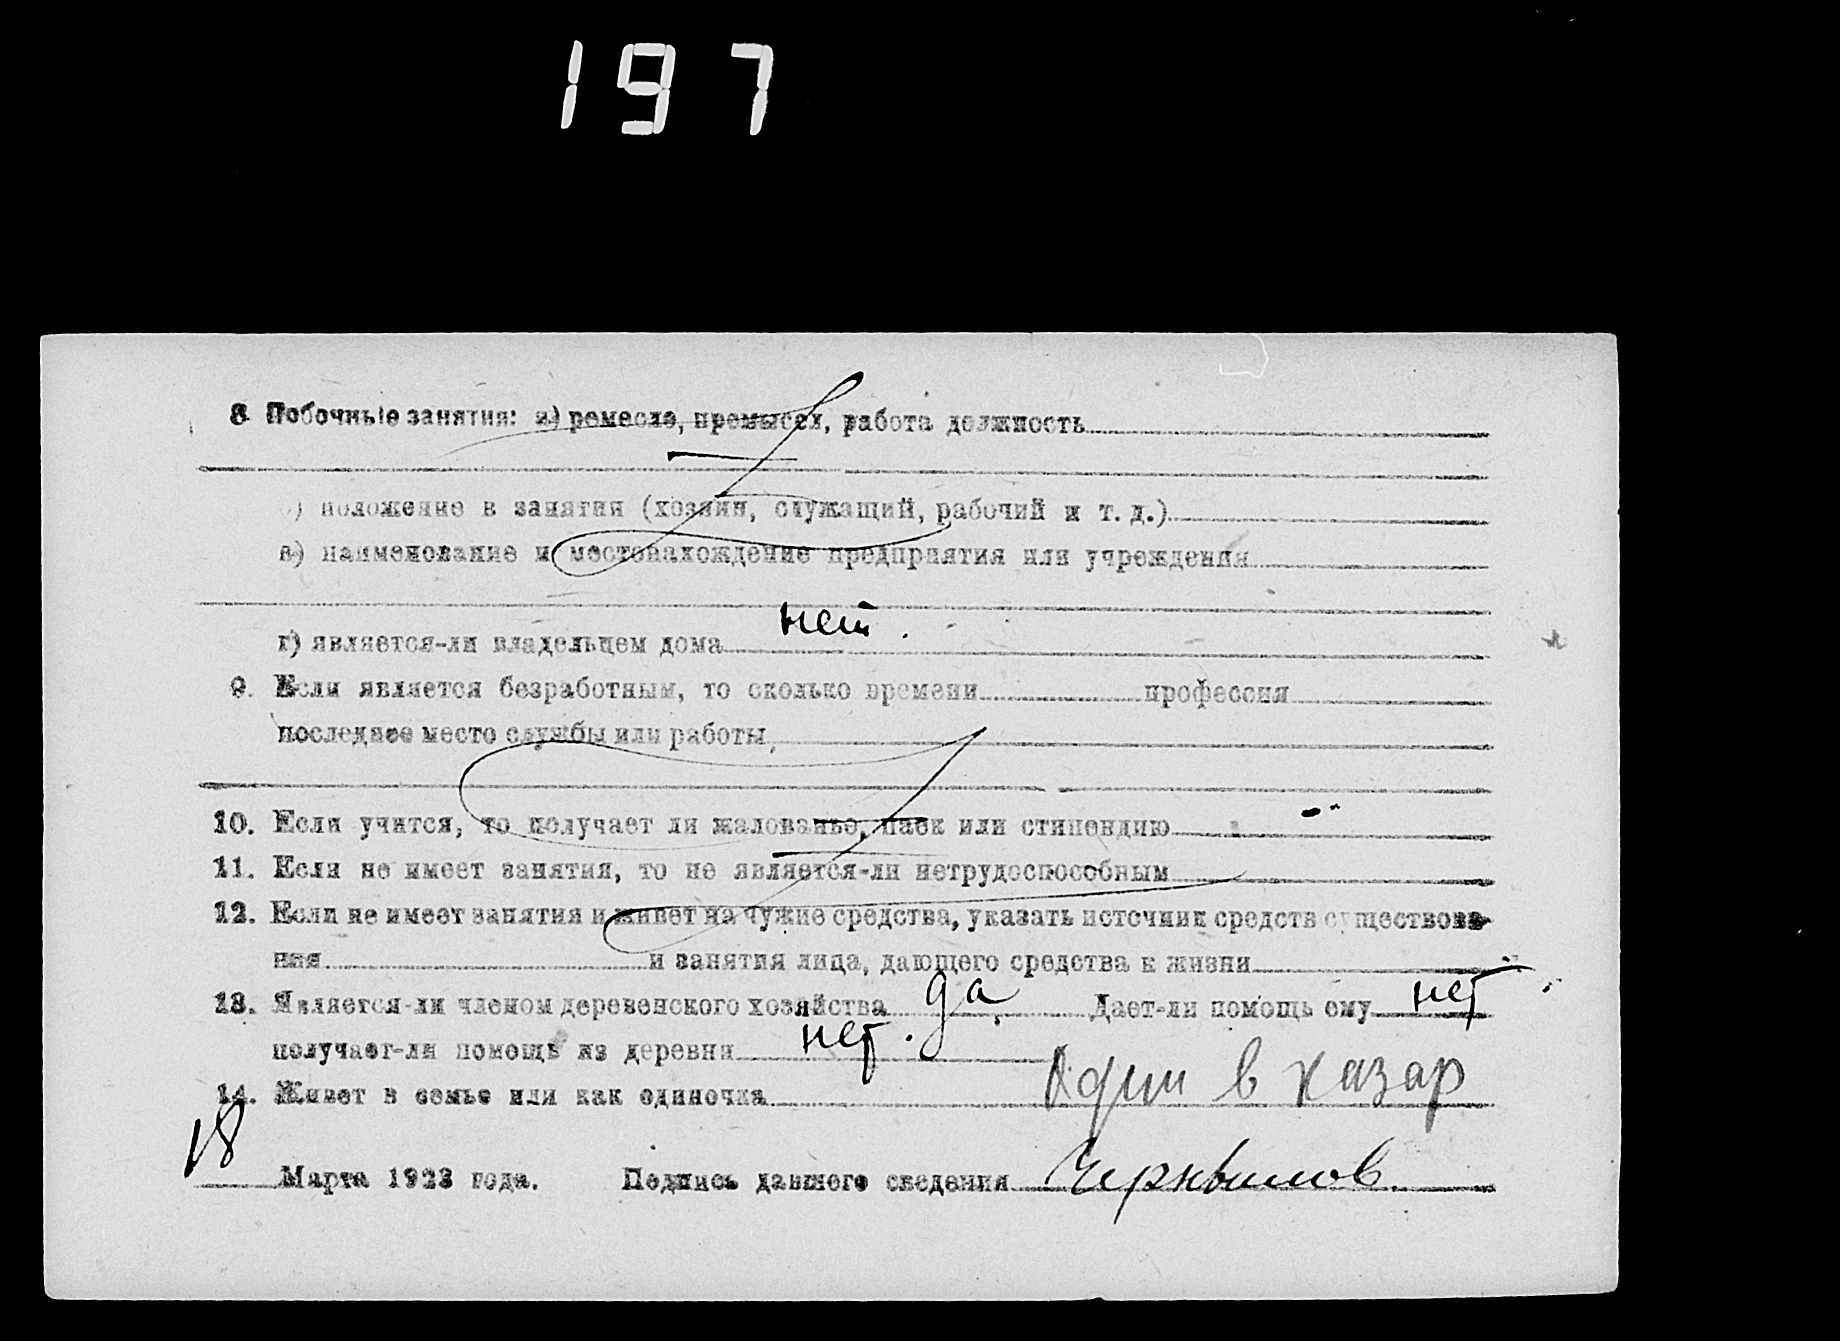 197
8. Побочные занятия: а) ремесло, промысел, работа должность
б) положение в занятия (хозяин, служащий, рабочий и т. д.)
в) наименование и местонахождение предприятия или учреждения
г) является-ли владельцем дома нет.
9. Если является безработным, то сколько времени профессия
последнее место службы или работы
10. Если учится, то получает ли жалованье, паек или стипендию
11. Если не имеет занятия, то не является-ли нетрудоспособным
12. Если не имеет занятия и живет на чужие средства, указать источник средств существова-
ния и занятия лица, дающего средства к жизни
13. Является-ли членом деревенского хозяйства да Дает-ли помощь ему нет
получает-ли помощь из деревни нет.
14. Живет в семье или как одиночка Один в казар
18 Марта 1923 года. Подпись давшего сведения